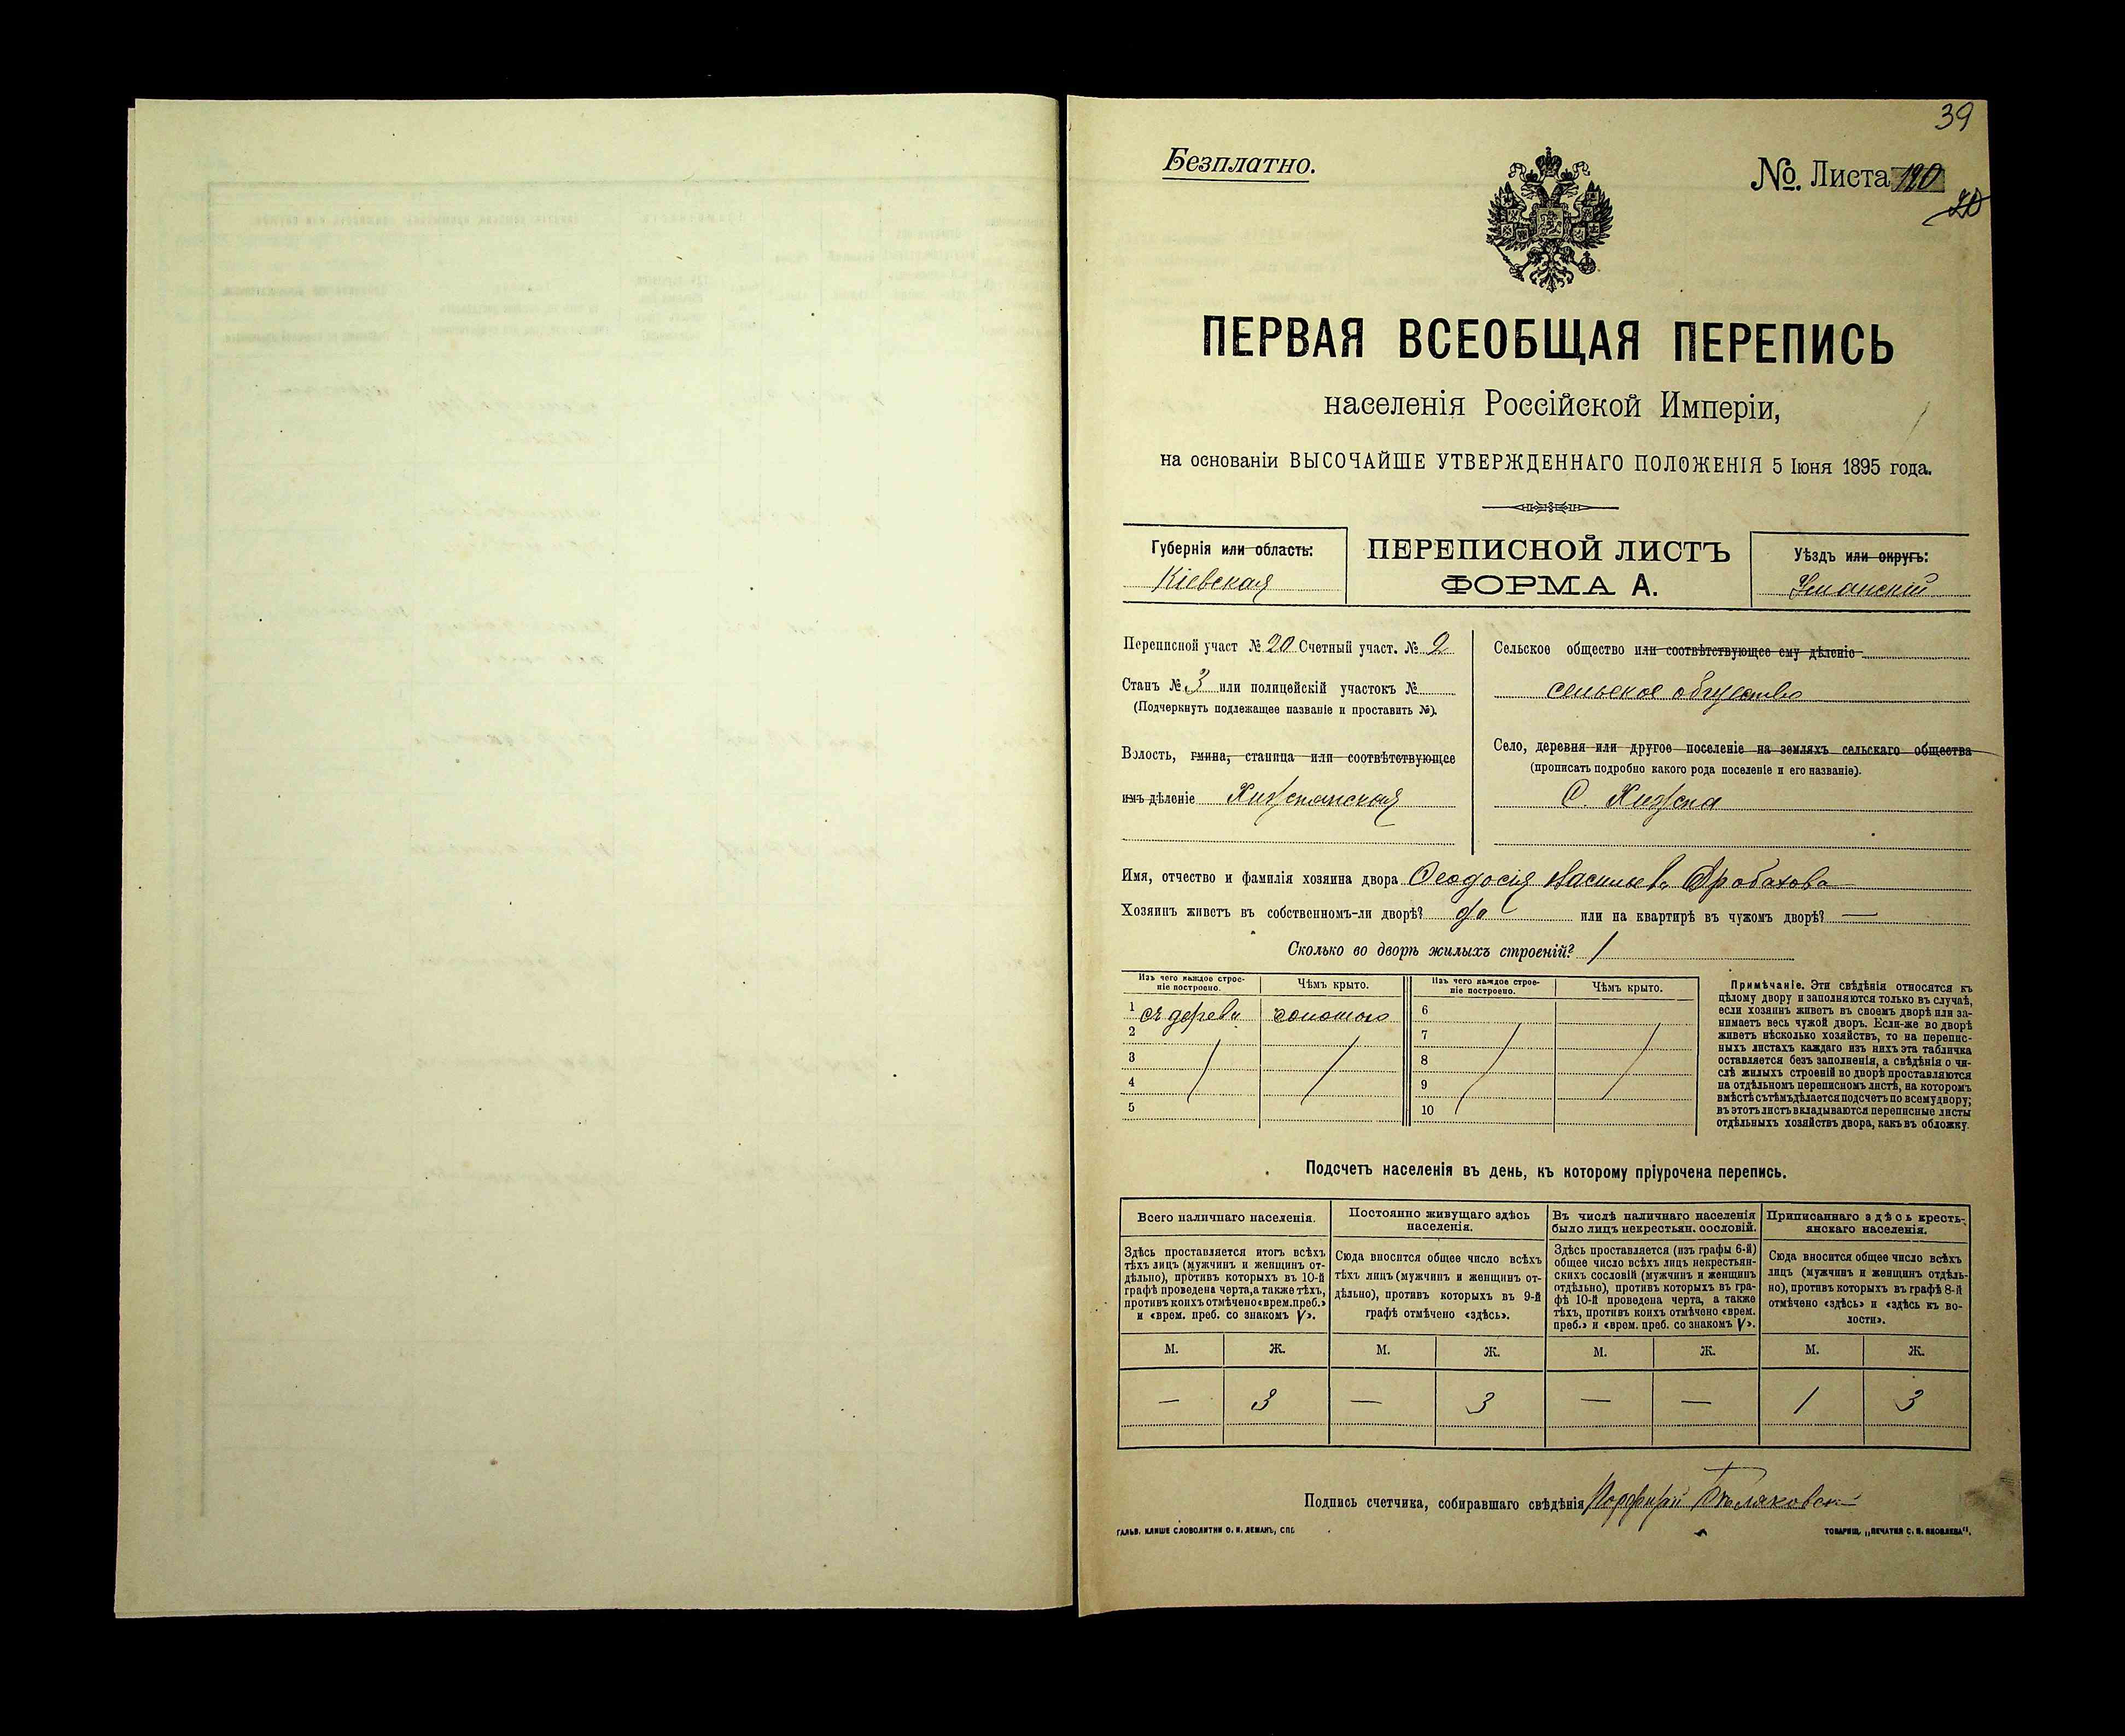 39
Безплатно.
№. Листа 120
20
ПЕРВАЯ ВСЕОБЩАЯ ПЕРЕПИСЬ
населенія Россійской Имперіи,
на основаніи ВЫСОЧАЙШЕ УТВЕРЖДЕННАГО ПОЛОЖЕНІЯ 5 Іюня 1895 года.
Губернія или область:
Кіевская
ПЕРЕПИСНОЙ ЛИСТЪ
ФОРМА А.
Уѣздъ или округъ:
Уманскій
Переписной участ № 20 Счетный участ. № 2
Станъ № 3 или полицейскій участокъ №
(Подчеркнуть подлежащее названіе и проставить №).
Волость, гмина, станица или соотвѣтствующее
имъ дѣленіе Хижнянская
Сельское общество или соотвѣтствующее ему дѣленіе
сельское общество
Село, деревня или другое поселеніе на земляхъ сельскаго общества
(прописать подробно какого рода поселеніе и его названіе).
С. Хижна
Имя, отчество и фамилія хозяина двора Феодосія Васильева
Хозяинъ живетъ въ собственномъ-ли дворѣ? да или на квартирѣ въ чужомъ дворѣ? —
Сколько во дворѣ жилыхъ строеній? 1
Изъ чего каждое строе-
ніе построено.
Чѣмъ крыто.
Изъ чего каждое строе-
ніе построено.
Чѣмъ крыто.
1 съ дерева соломою
2
3
4
5
6
7
8
9
10
Примѣчаніе. Эти свѣдѣнія относятся къ
цѣлому двору и заполняются только въ случаѣ,
если хозяинъ живетъ въ своемъ дворѣ или за-
нимаетъ весь чужой дворъ. Если-же во дворѣ
живетъ нѣсколько хозяйствъ, то на перепис-
ныхъ листахъ каждаго изъ нихъ эта табличка
оставляется безъ заполненія, а свѣдѣнія о чи-
слѣ жилыхъ строеній во дворѣ проставляются
на отдѣльномъ переписномъ листѣ, на которомъ
вмѣстѣ съ тѣмъ дѣлается подсчетъ по всему двору;
въ этотъ листъ вкладываются переписные листы
отдѣльныхъ хозяйствъ двора, какъ въ обложку.
Подсчетъ населенія въ день, къ которому пріурочена перепись.
Всего наличнаго населенія.
Здѣсь проставляется итогъ всѣхъ
тѣхъ лицъ (мужчинъ и женщинъ от-
дѣльно), противъ которыхъ въ 10-й
графѣ проведена черта, а также тѣхъ,
противъ коихъ отмѣчено «врем. преб.»
и «врем. преб. со знакомъ V».
Постоянно живущаго здѣсь
населенія.
Сюда вносится общее число всѣхъ
тѣхъ лицъ (мужчинъ и женщинъ от-
дѣльно), противъ которыхъ въ 9-й
графѣ отмѣчено «здѣсь».
Въ числѣ наличнаго населенія
было лицъ некрестьян. сословій.
Здѣсь проставляется (изъ графы 6-й)
общее число всѣхъ лицъ некрестьян-
скихъ сословій (мужчинъ и женщинъ
отдѣльно), противъ которыхъ въ гра-
фѣ 10-й проведена черта, а также
тѣхъ, противъ коихъ отмѣчено «врем.
преб.» и «врем. преб. со знакомъ V».
Приписаннаго здѣсь кресть-
янскаго населенія.
Сюда вносится общее число всѣхъ
лицъ (мужчинъ и женщинъ отдѣль-
но), противъ которыхъ въ графѣ 8-й
отмѣчено «здѣсь» и «здѣсь къ во-
лости».
М. Ж. М. Ж. М. Ж. М. Ж.
— 3 — 3 — — 1 3
Подпись счетчика, собиравшаго свѣдѣнія Порфирій
ГАЛЬВ. КЛИШЕ СЛОВОЛИТНИ О. И. ЛЕМАНЪ, СПБ.
ТОВАРИЩ. „ПЕЧАТНЯ С. П. ЯКОВЛЕВА“.